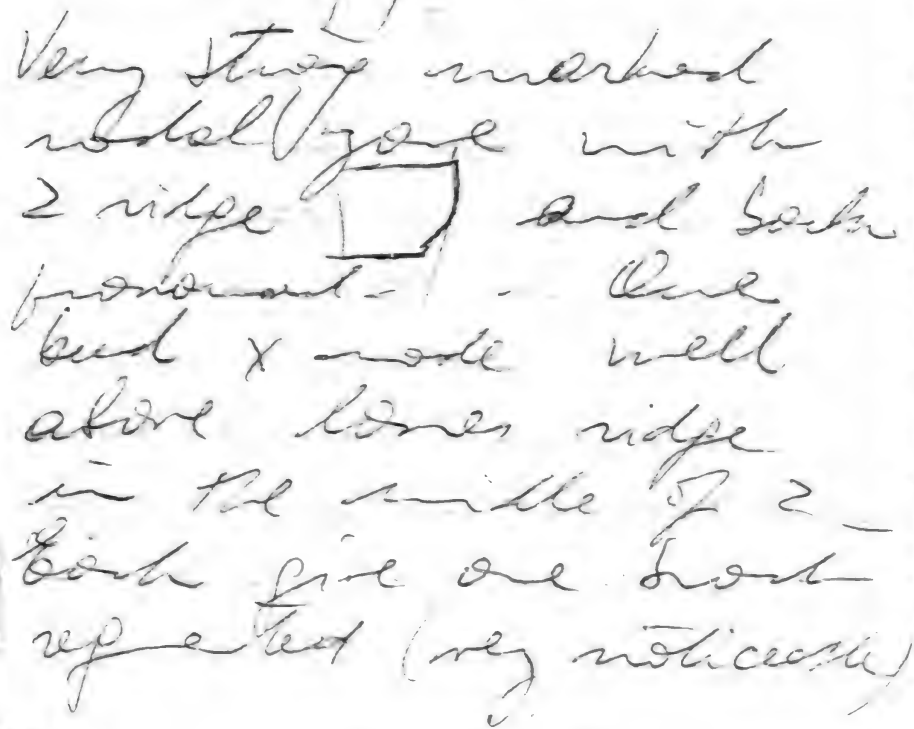 Very strong marked
nodal zone with
2 ridge and both
pronounced - - One
bud x node well
above lower ridge
in the middle of 2 _
Each give one branch
repeated (very noticeable)